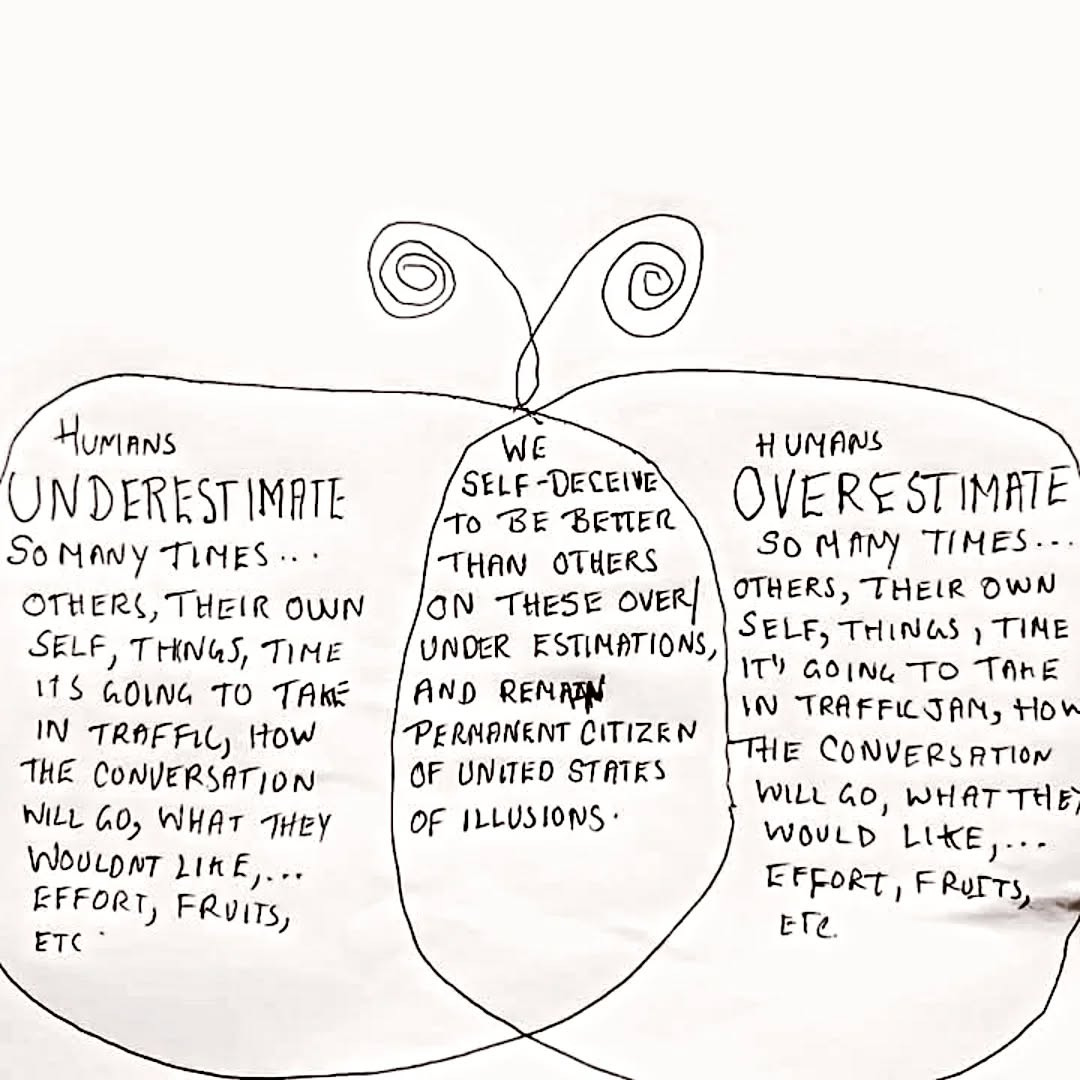 HUMANS
UNDERESTIMATE
SO MANY TIMES...
OTHERS, THEIR OWN
SELF, THINGS, TIME
ITS GOING TO TAKE
IN TRAFFIC, HOW
THE CONVERSATION
WILL GO, WHAT THEY
WOULDNT LIKE,...
EFFORT, FRUITS,
ETC.
WE
SELF-DECEIVE
TO BE BETTER
THAN OTHERS
ON THESE OVER/
UNDER ESTIMATIONS,
AND REMAIN
PERMANENT CITIZEN
OF UNITED STATES
OF ILLUSIONS.
HUMANS
OVERESTIMATE
SO MANY TIMES...
OTHERS, THEIR OWN
SELF, THINGS, TIME
IT'S GOING TO TAKE
IN TRAFFIC JAM, HOW
THE CONVERSATION
WILL GO, WHAT THEY
WOULD LIKE,...
EFFORT, FRUITS,
ETC.